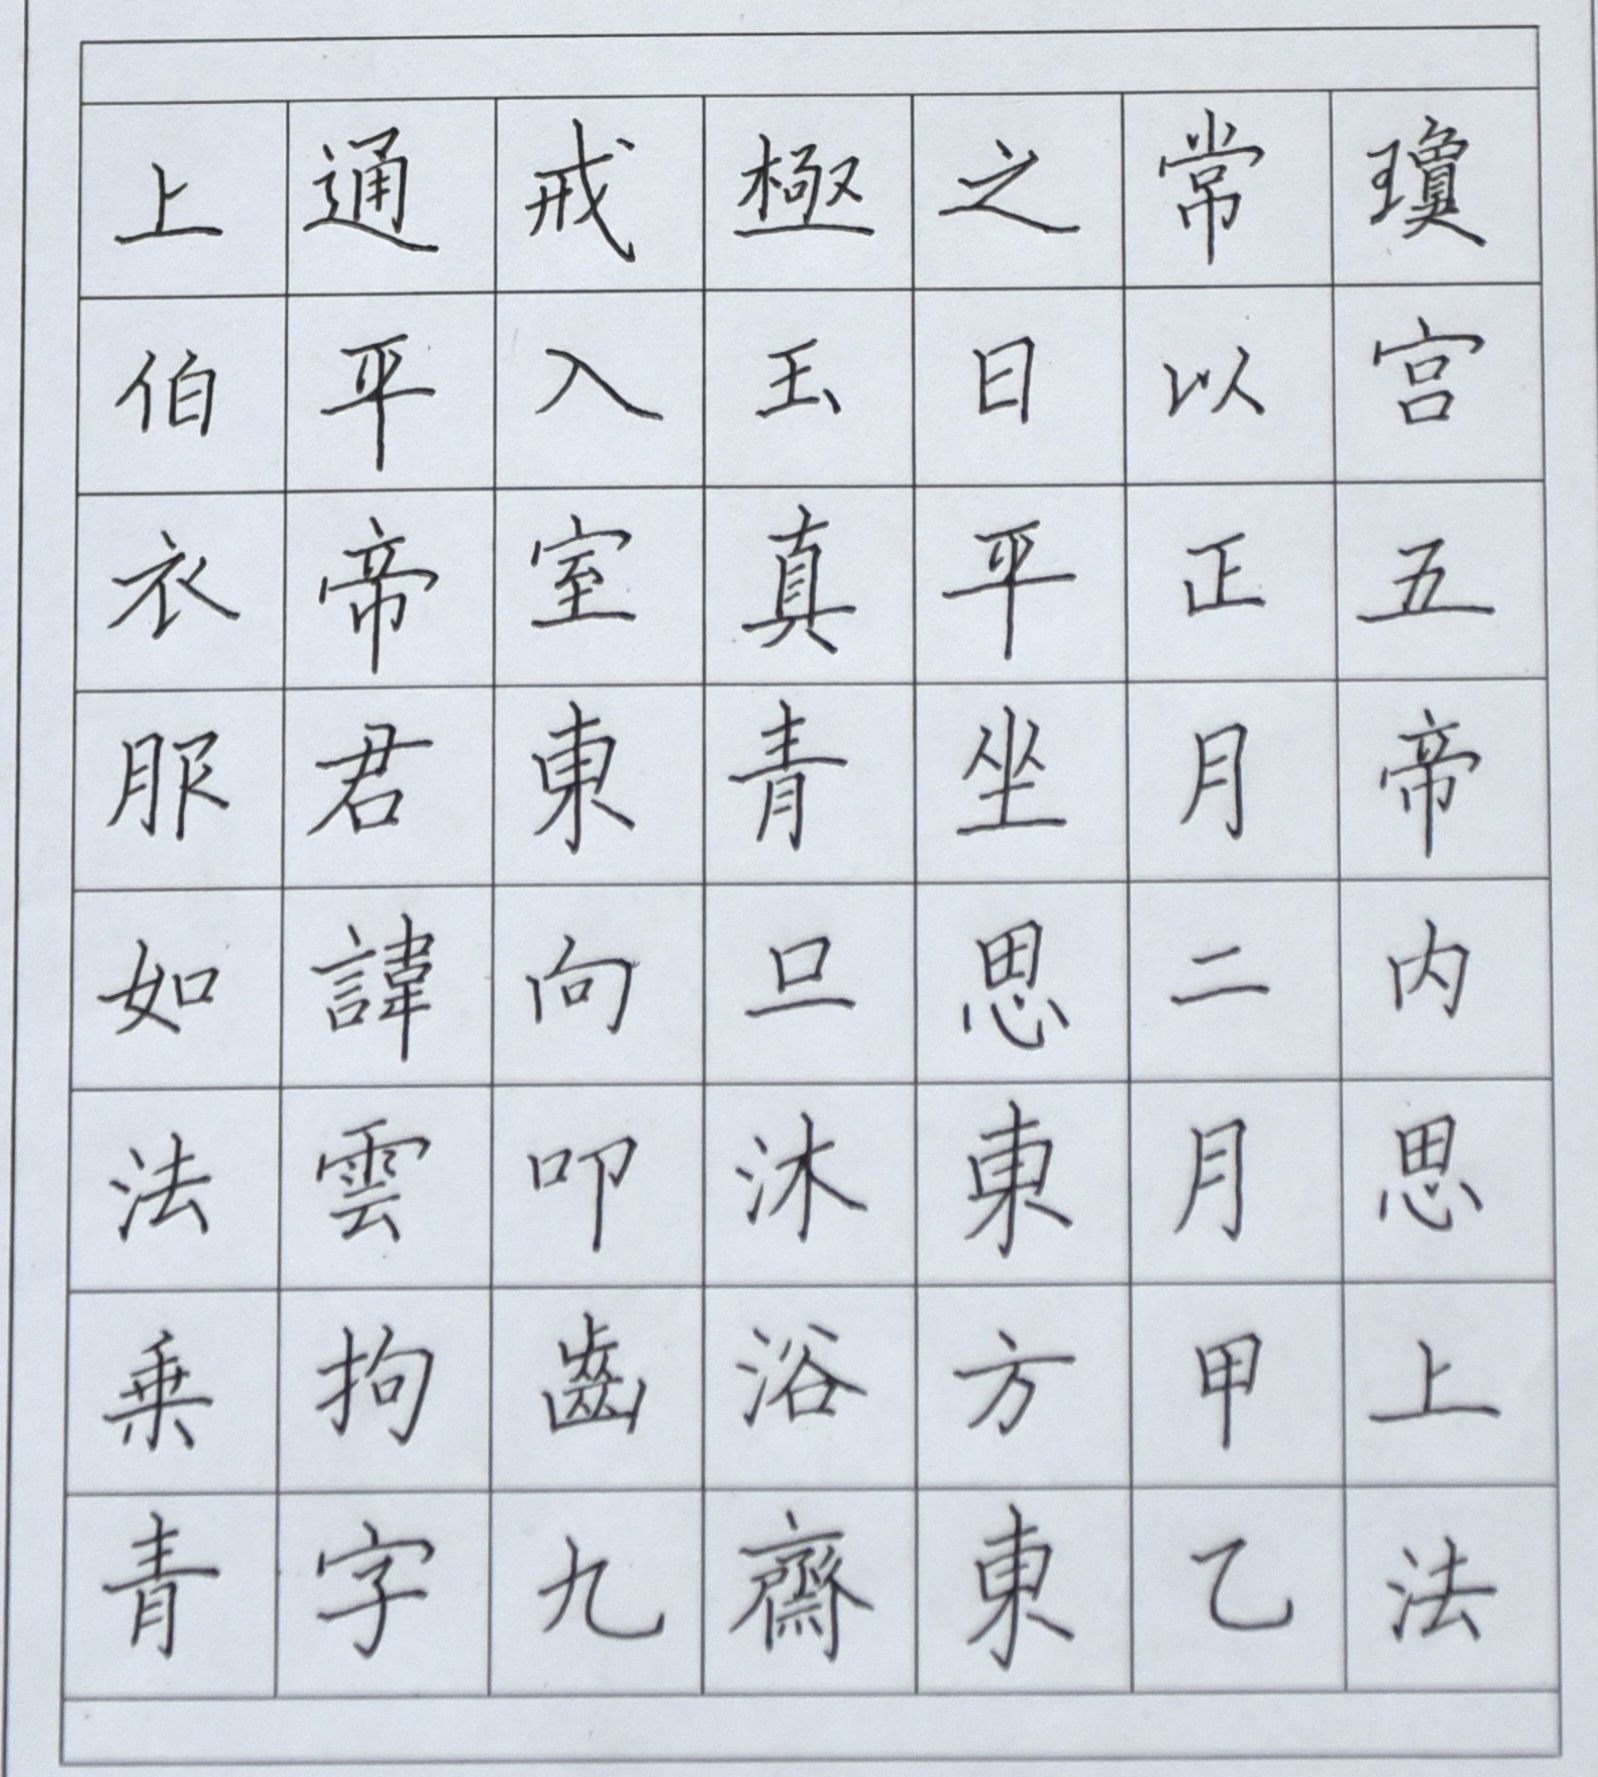 瓊宫五帝内思上法
常以正月二月甲乙
之日平坐思東方東
極玉真青旦沐浴齋
戒入室東向叩齒九
通平帝君諱雲拘字
上伯衣服如法乗青